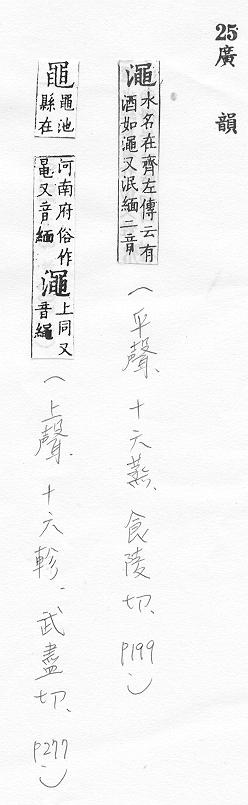 25
廣韻
澠水名在齊左傳云有酒如澠又泯緬二音(平聲、十六蒸、食陵切、P199)
黽黽池縣在河南府俗作又音緬澠上同又音繩(上聲、十六軫、武盡切、P277)